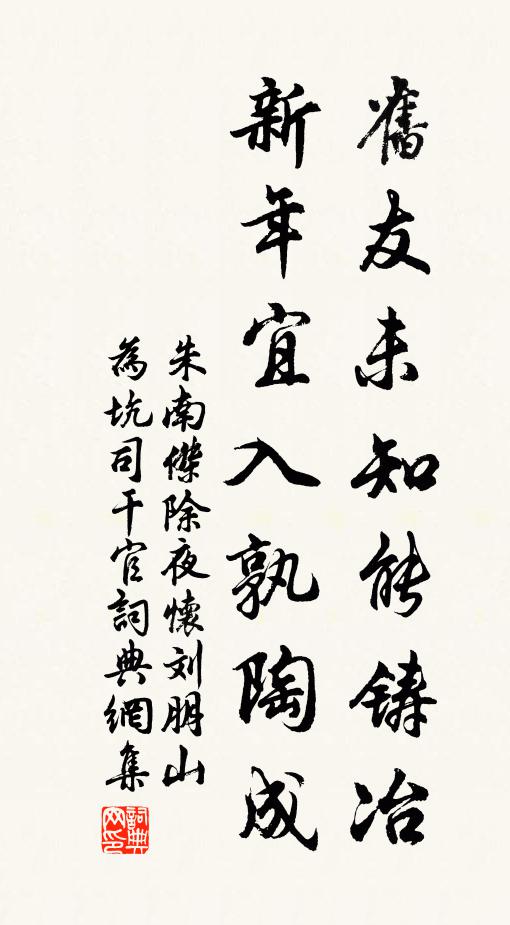 舊友未知能铸冶
新年宜入孰陶成
朱南傑除夜懷刘朋山
為坑司干官詞典網集
詞典網印